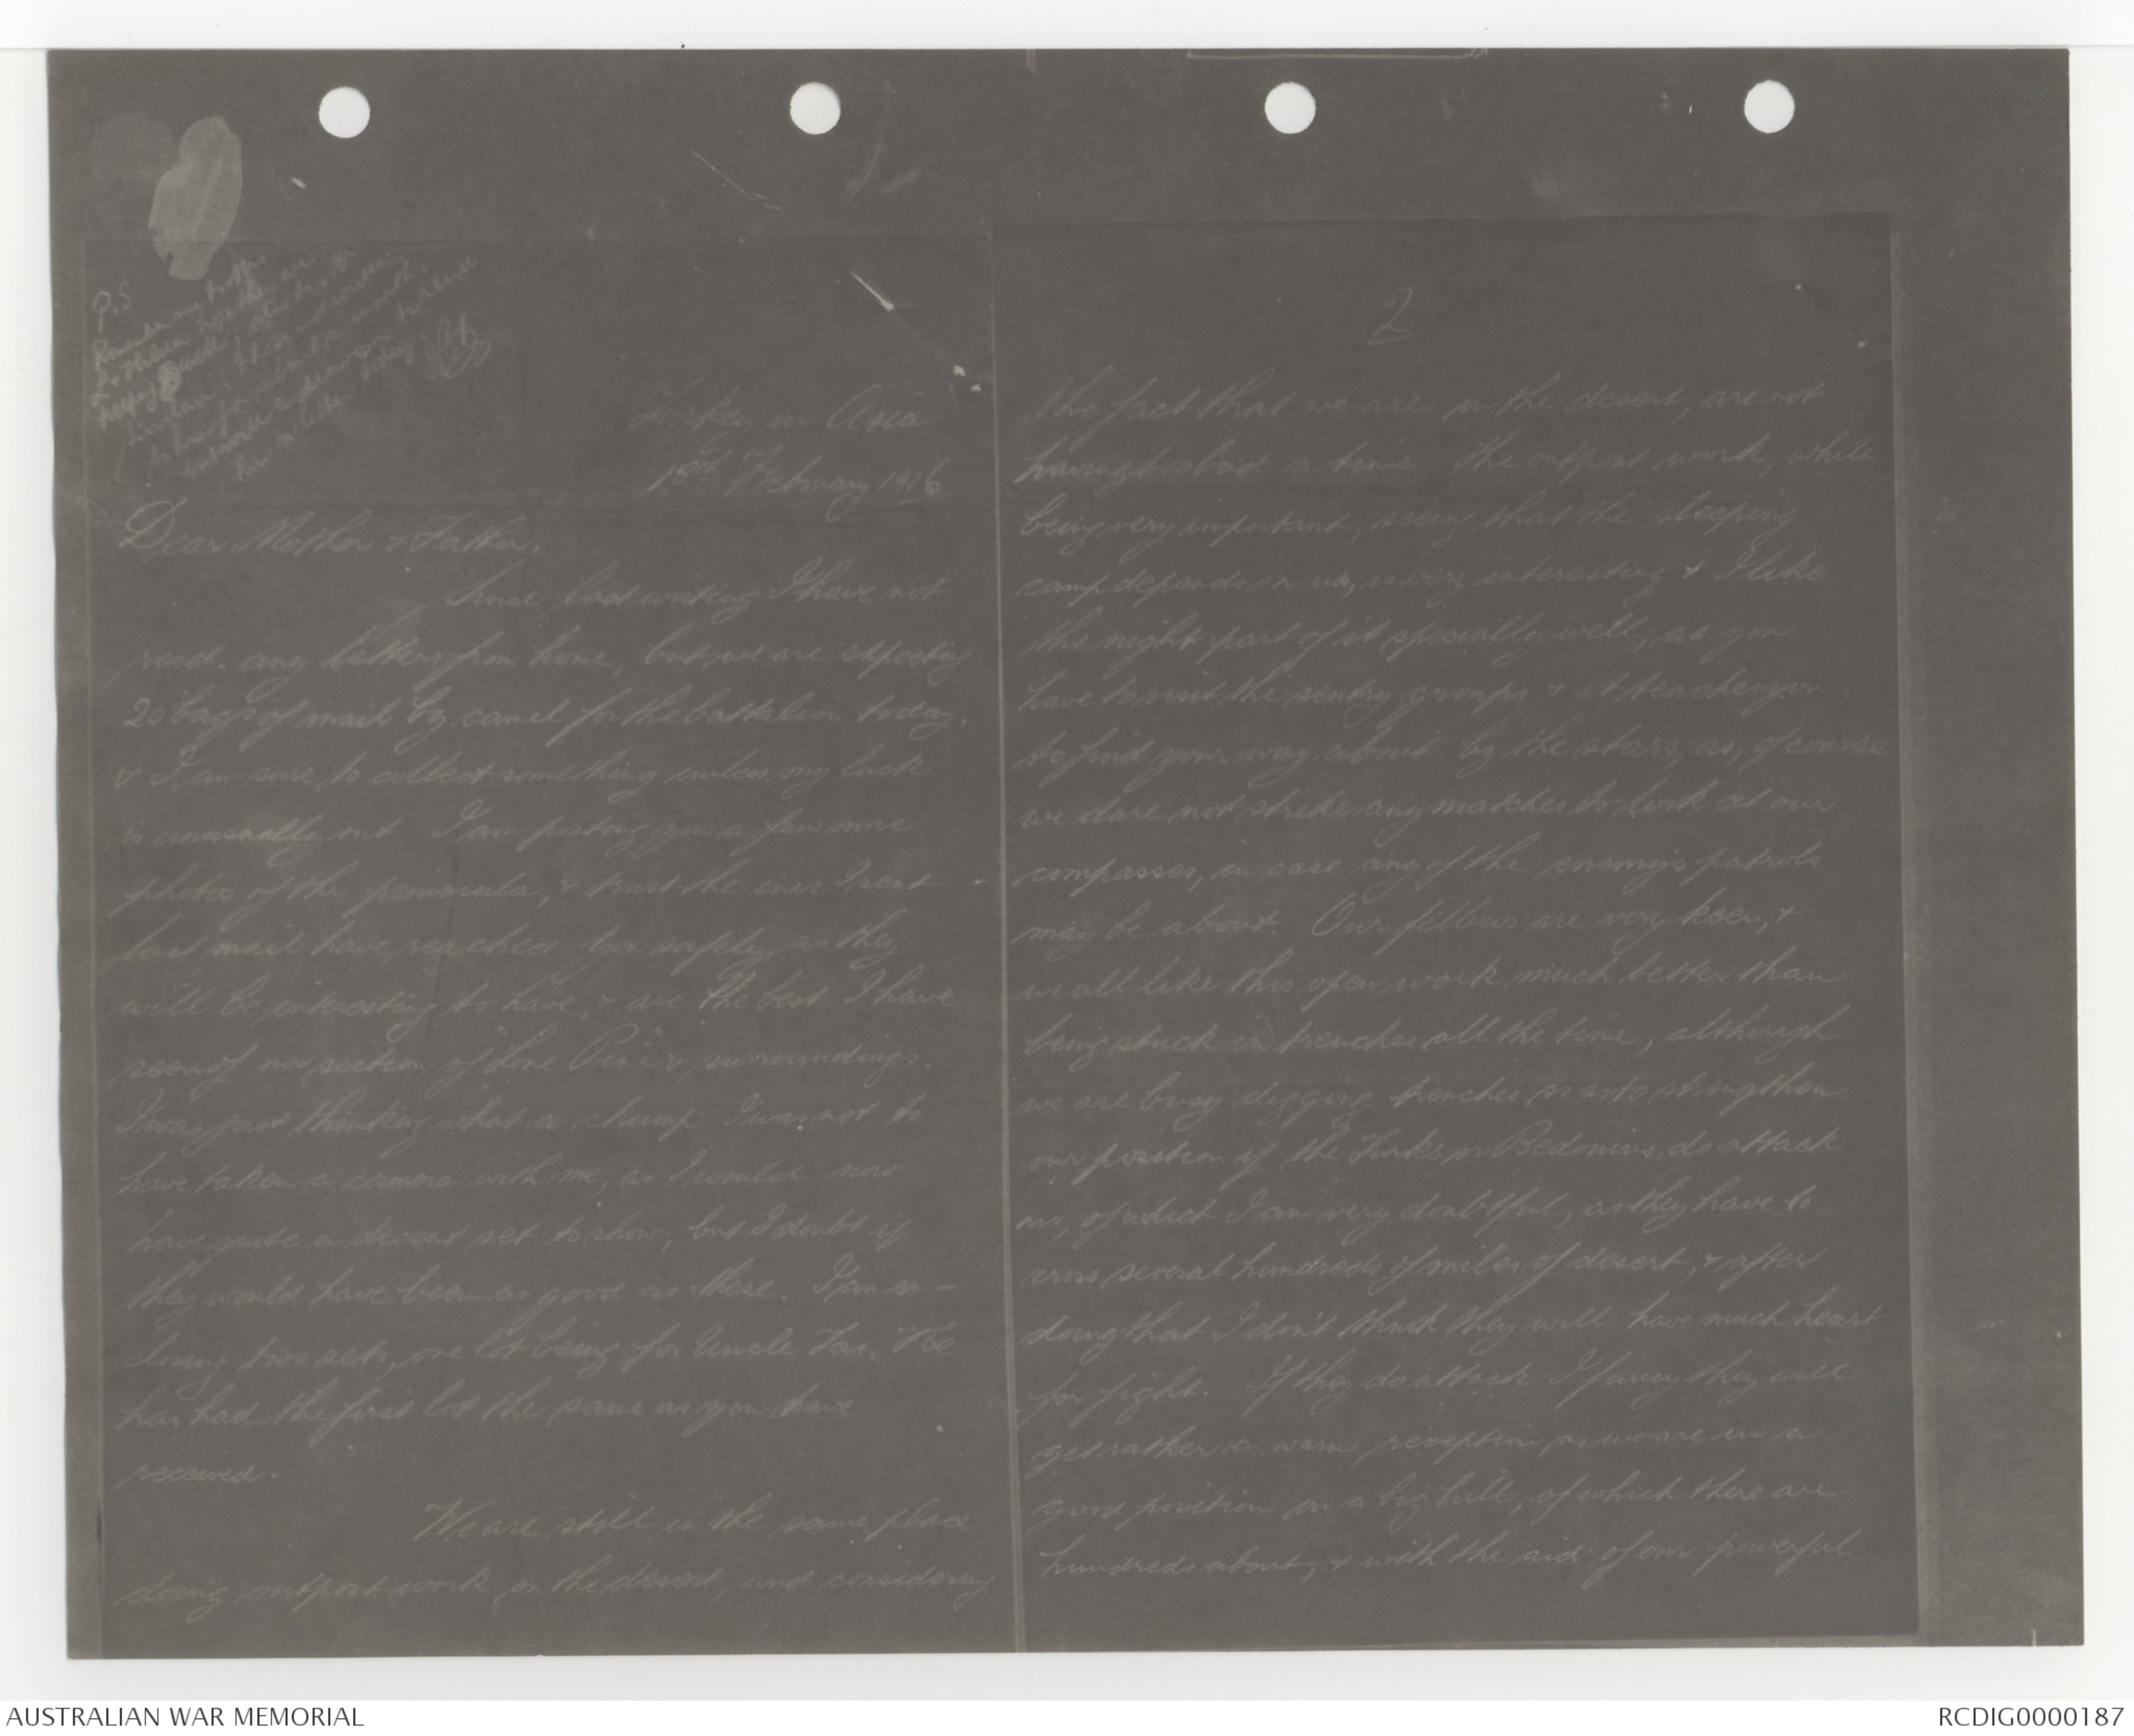 P.S
Turkey in Asia
19th February 1916
Dear Mother & Father,
Since last writing I have not
recd. any letters from home, but we are expecting
20 bags of mail by camel for the battalion today,
& I am sure to collect something unless my luck
is unusually out. I am posting you a few more
photos of the peninsula, & trust the ones I sent
last mail have reached you safely, as they
will be interesting to have, & are the best I have
seen of our section of "Lone Pine" & surroundings.
I was just thinking what a chump I was not to
have taken a camera with me, as I would now
have quite a decent set to show, but I doubt if
they would have been as good as these. I am en-
closing two sets, one lot being for Uncle Jas. He
has had the first lot the same as you have
received.
We are still in the same place
doing outpost work in the desert, and considering
2
the fact that we are in the desert, are not
having too bad a time. The outpost work, while
being very important, seeing that the sleeping
camp depends on us, is very interesting & I like
the night part of it specially well, as you
have to visit the sentry groups & it teaches you
to find your way about by the stars, as, of course
we dare not strike any matches to look at our
compasses, in case any of the enemy's patrols
may be about. Our fellows are very keen, &
we all like this open work much better than
being stuck in trenches all the time, although
we are busy digging trenches so as to strengthen
our position if the Turks or Bedouins do attack
us, of which I am very doubtful, as they have to
cross several hundreds of miles of desert, & after
doing that I don't think they will have much heart
for fight. If they do attack I fancy they will
get rather a warm reception as we are in a
good position on a big hill, of which there are
hundreds about, & with the aid of our powerful
AUSTRALIAN WAR MEMORIAL
RCDIG0000187